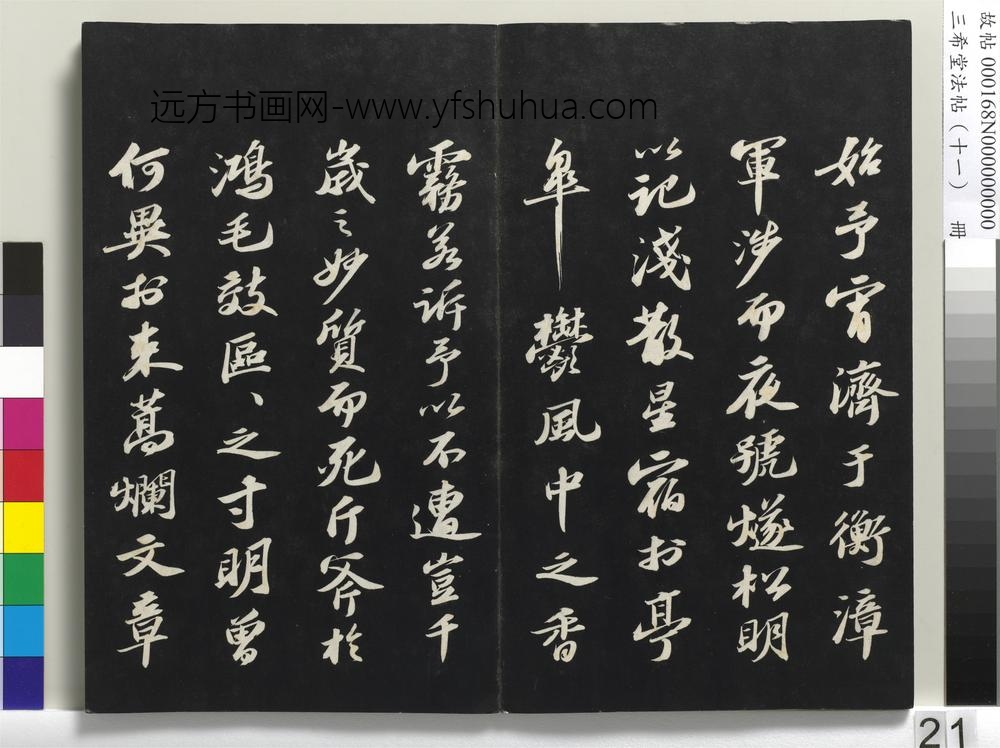 始予宵濟于衡漳
軍涉而夜號燧松明
以記淺散星宿於亭
皐鬱風中之香
霧若訴予以不遭豈千
歲之妙質而死斤斧於
鴻毛效區、之寸明曾
何異於束蒿爛文章
远方书画网-www.yfshuhua.com
故帖 000168N000000000
三希堂法帖(十一) 冊
21